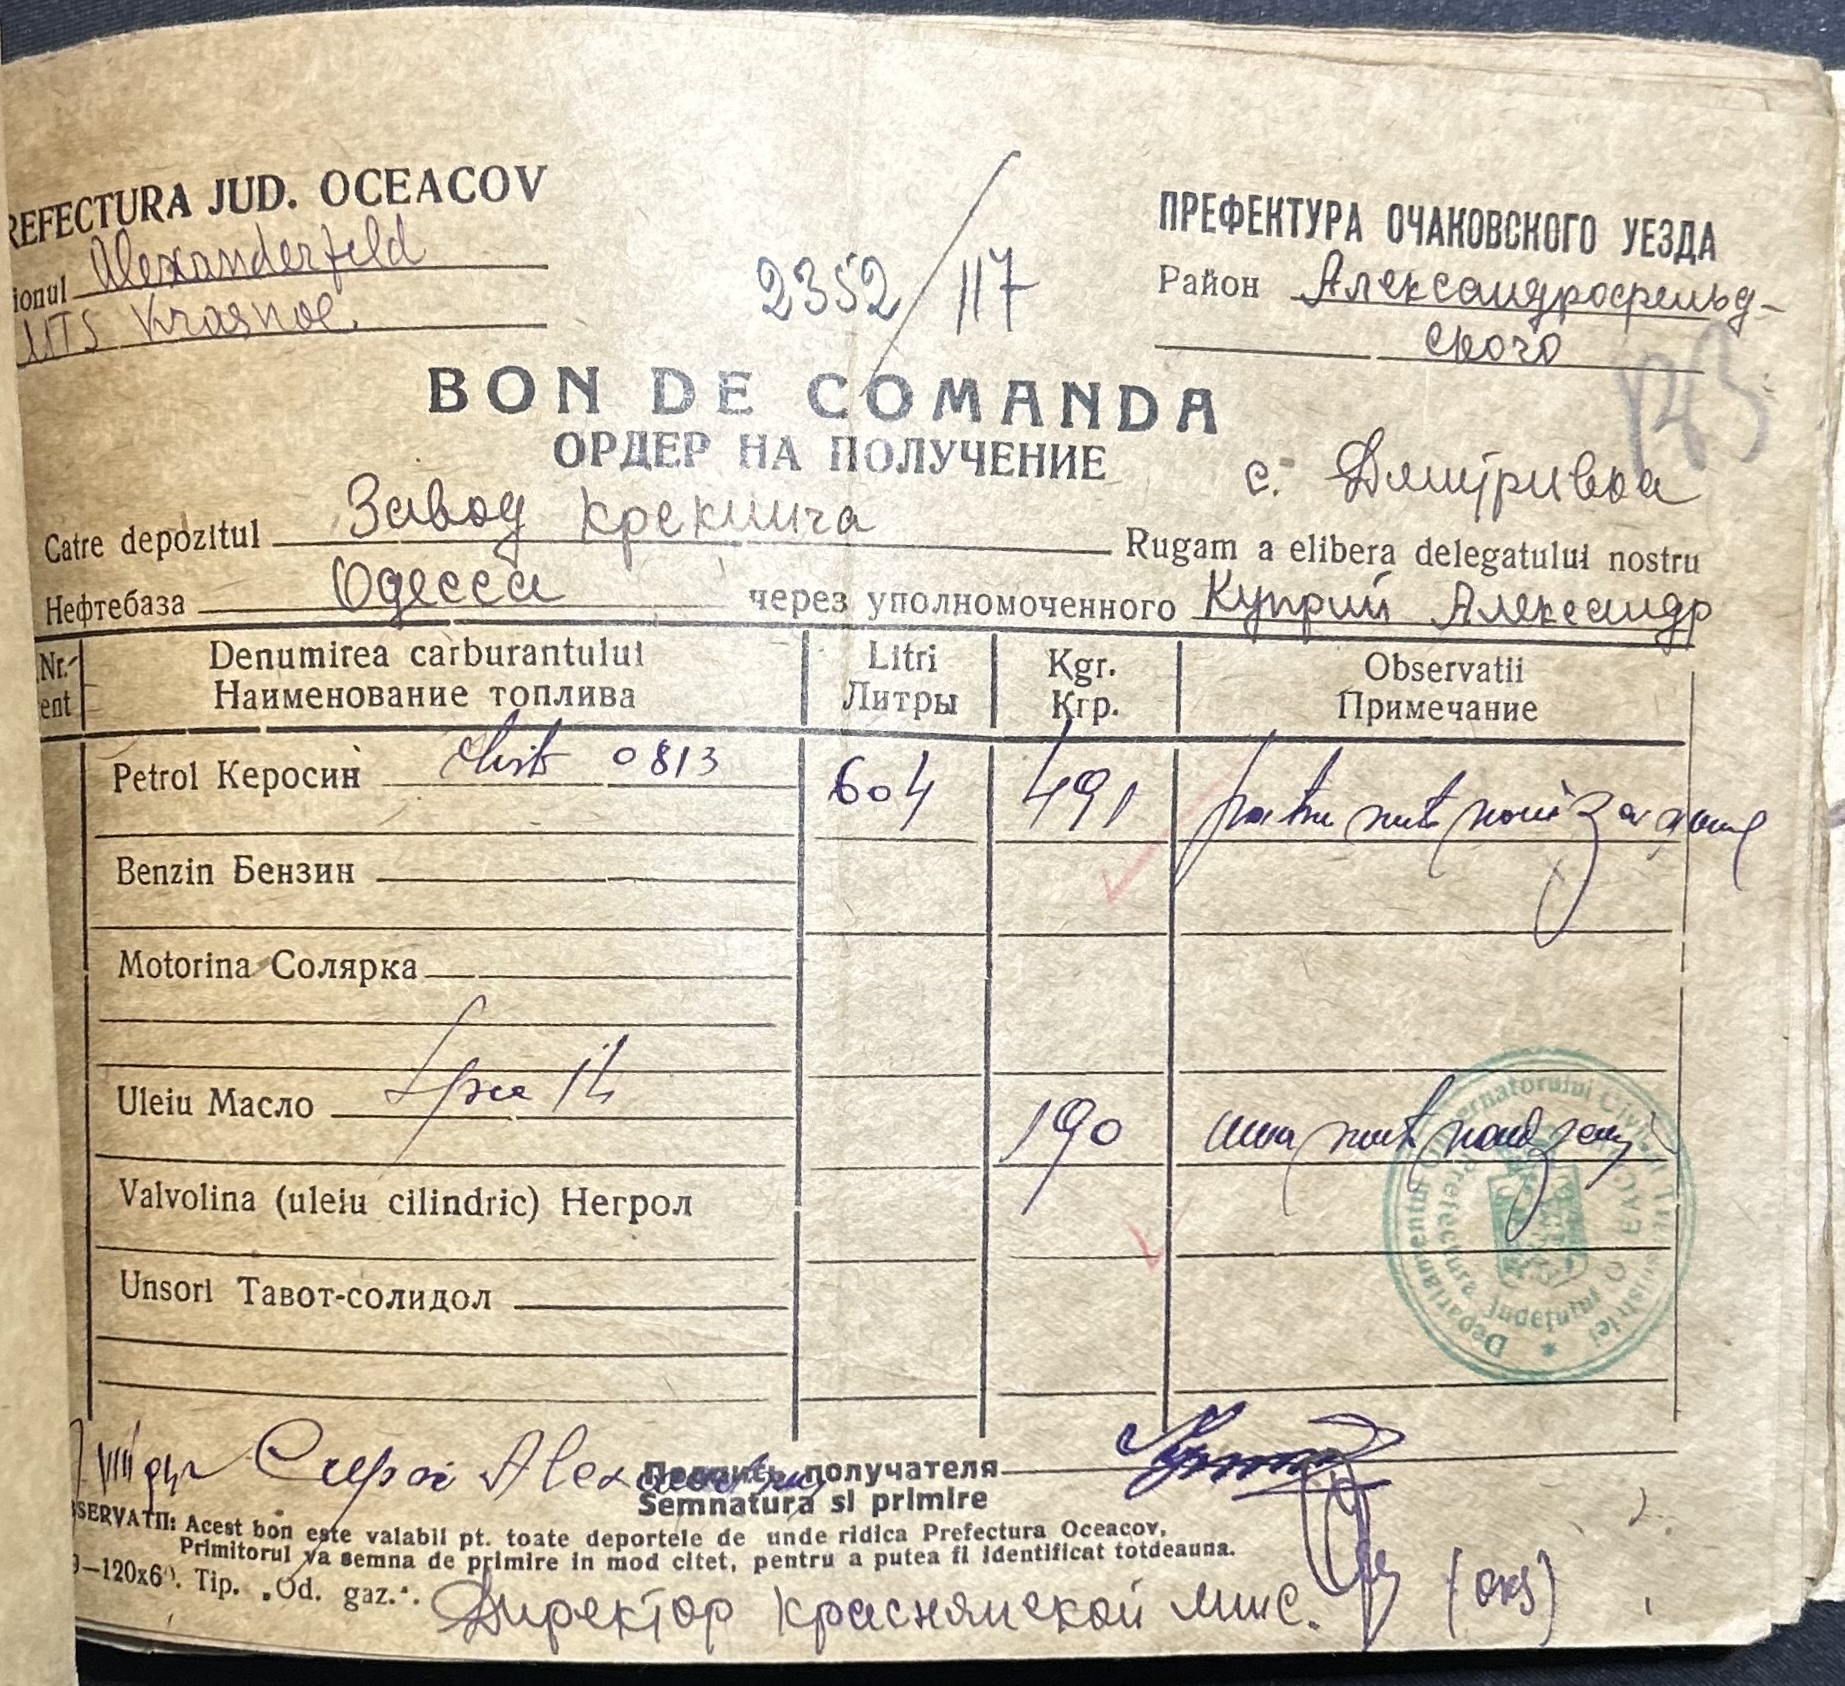 REFECTURA JUD. OCEACOV
ionul Alexanderfeld
MTS Krasnoe.
2352/117
ПРЕФЕКТУРА ОЧАКОВСКОГО УЕЗДА
Район Александрофельд-
ского
123
BON DE COMANDA
ОРДЕР НА ПОЛУЧЕНИЕ
с. Дмитривка
Catre depozitul Завод крекинга Rugam a elibera delegatului nostru
Нефтебаза Одесса через уполномоченного Куприй Александр
Nr. Denumirea carburantului Litri Kgr. Observatii
ent Наименование топлива Литры Кгр. Примечание
Petrol Керосин 0813 604 491 patru sute
Benzin Бензин
Motorina Солярка
Uleiu Масло 190 una suta nouă zeci
Valvolina (uleiu cilindric) Негрол
Unsori Тавот-солидол
Подпись получателя
Semnatura si primire
SERVATII: Acest bon este valabil pt. toate deportele de unde ridica Prefectura Oceacov.
Primitorul va semna de primire in mod citet, pentru a putea fi identificat totdeauna.
9—120x60. Tip. „Od. gaz.“.
Директор Краснянской мтс.
Departamentul Guvernatorului Civil al Transnistriei
Prefectura Judetului